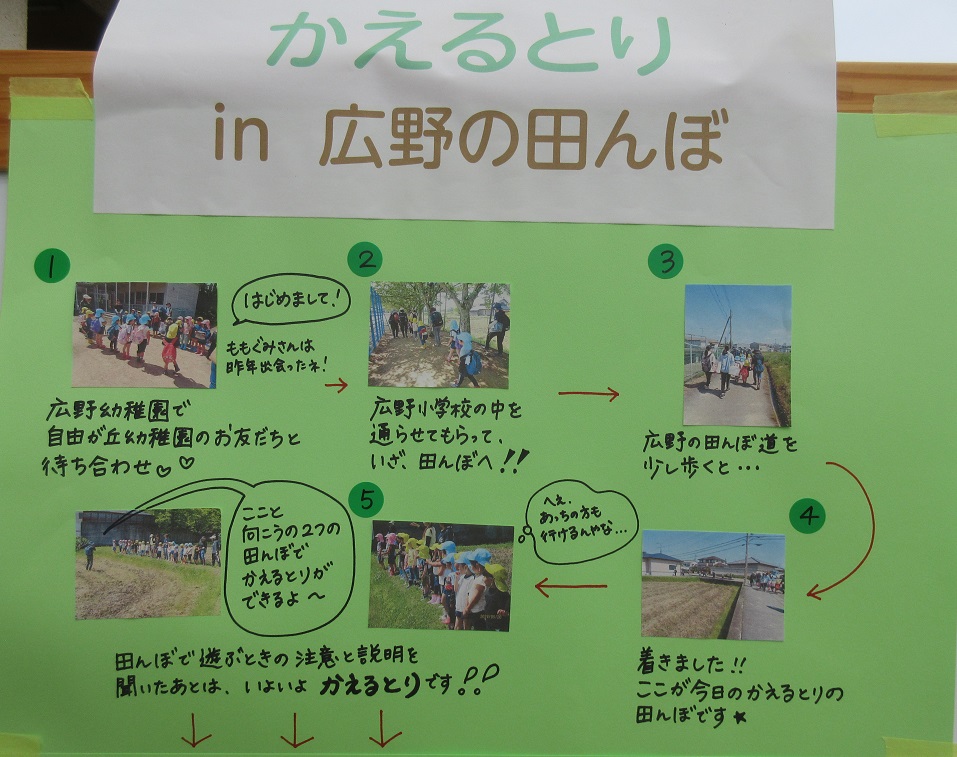 かえるとり
in 広野の田んぼ
1
はじめまして!
ももぐみさんは
昨年出会ったネ!
広野幼稚園で
自由が丘幼稚園のお友だちと
待ち合わせ♡♡
2
広野小学校の中を
通らせてもらって、
いざ、田んぼへ!!
3
広野の田んぼ道を
少し歩くと…
4
着きました!!
ここが今日のかえるとりの
田んぼです★
5
へぇ、
あっちの方も
行けるんやな…
ここと
向こうの2つの
田んぼで
かえるとりが
できるよ～
田んぼで遊ぶときの注意と説明を
聞いたあとは、いよいよ かえるとりです!!